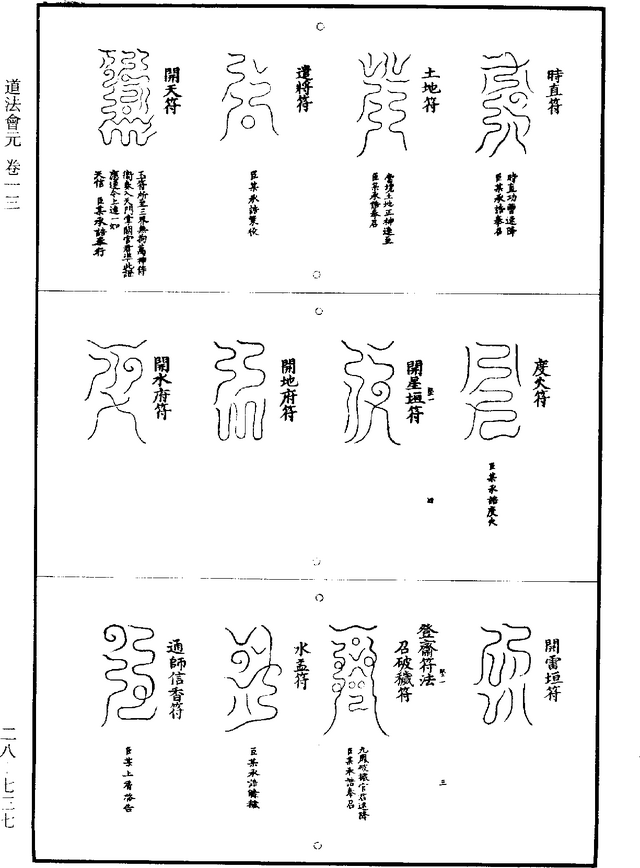 道法會元 卷一一三
二八·七三七
時直符
時直功曹速降
臣某承誥奉召
土地符
當境土地正神速至
臣某承誥奉召
遣將符
臣某承誥
開天符
玉符所至三界無拘萬神俾
天信 臣某承誥奉行
度火符
臣某承誥度火
開星垣符
四
開地府符
開水府符
開雷垣符
登齋符法
召破穢符
三
九鳳破穢官君速降
臣某承誥奉召
水盂符
臣某承誥
通師信香符
臣某上香啓告